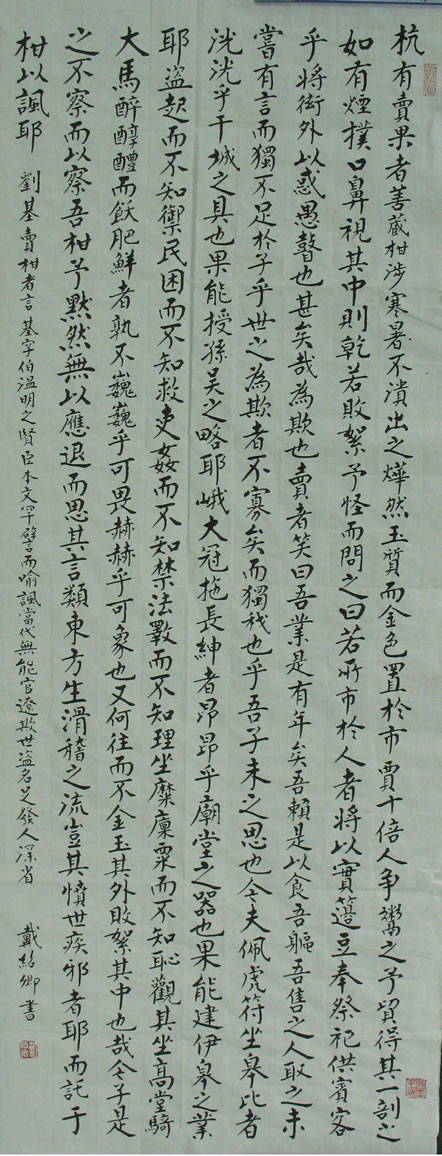 杭有賣果者善藏柑涉寒暑不潰出之燁然玉質而金色置於市賈十倍人爭鬻之予貿得其一剖之
如有煙撲口鼻視其中則乾若敗絮予怪而問之曰若所市於人者將以實籩豆奉祭祀供賓客
乎將衒外以惑愚瞽也甚矣哉為欺也賣者笑曰吾業是有年矣吾賴是以食吾軀吾售之人取之未
嘗有言而獨不足於子乎世之為欺者不寡矣而獨我也乎吾子未之思也今夫佩虎符坐皋比者
洸洸乎干城之具也果能授孫吳之略耶峨大冠拖長紳者昂昂乎廟堂之器也果能建伊皋之業
耶盜起而不知禦民困而不知救吏姦而不知禁法斁而不知理坐糜廩粟而不知恥觀其坐高堂騎
大馬醉醇醴而飫肥鮮者孰不巍巍乎可畏赫赫乎可象也又何往而不金玉其外敗絮其中也哉今子是
之不察而以察吾柑予默然無以應退而思其言類東方生滑稽之流豈其憤世疾邪者耶而託于
柑以諷耶 劉基賣柑者言 基字伯溫明之賢臣本文罕譬而喻諷當代無能官僚欺世盜名足發人深省 戴紹卿書